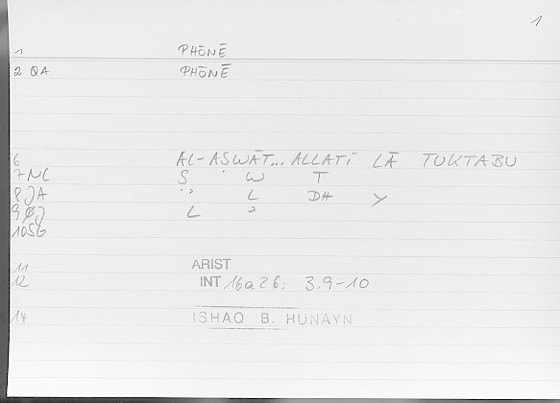 1
1 PHŌNĒ
2 QA PHŌNĒ
6 AL-AṢWĀT... ALLATĪ LĀ TUKTABU
7 NL S W T
8 JA " L DH Y
9 ØJ L ɔ
10 SG
11 ARIST
12 INT 16a26; 3.9-10
14 ISHAQ B. HUNAYN